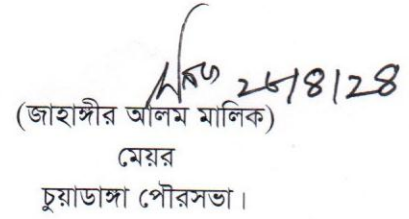 (জাহাঙ্গীর আলম মালিক)
মেয়র
চুয়াডাঙ্গা পৌরসভা।